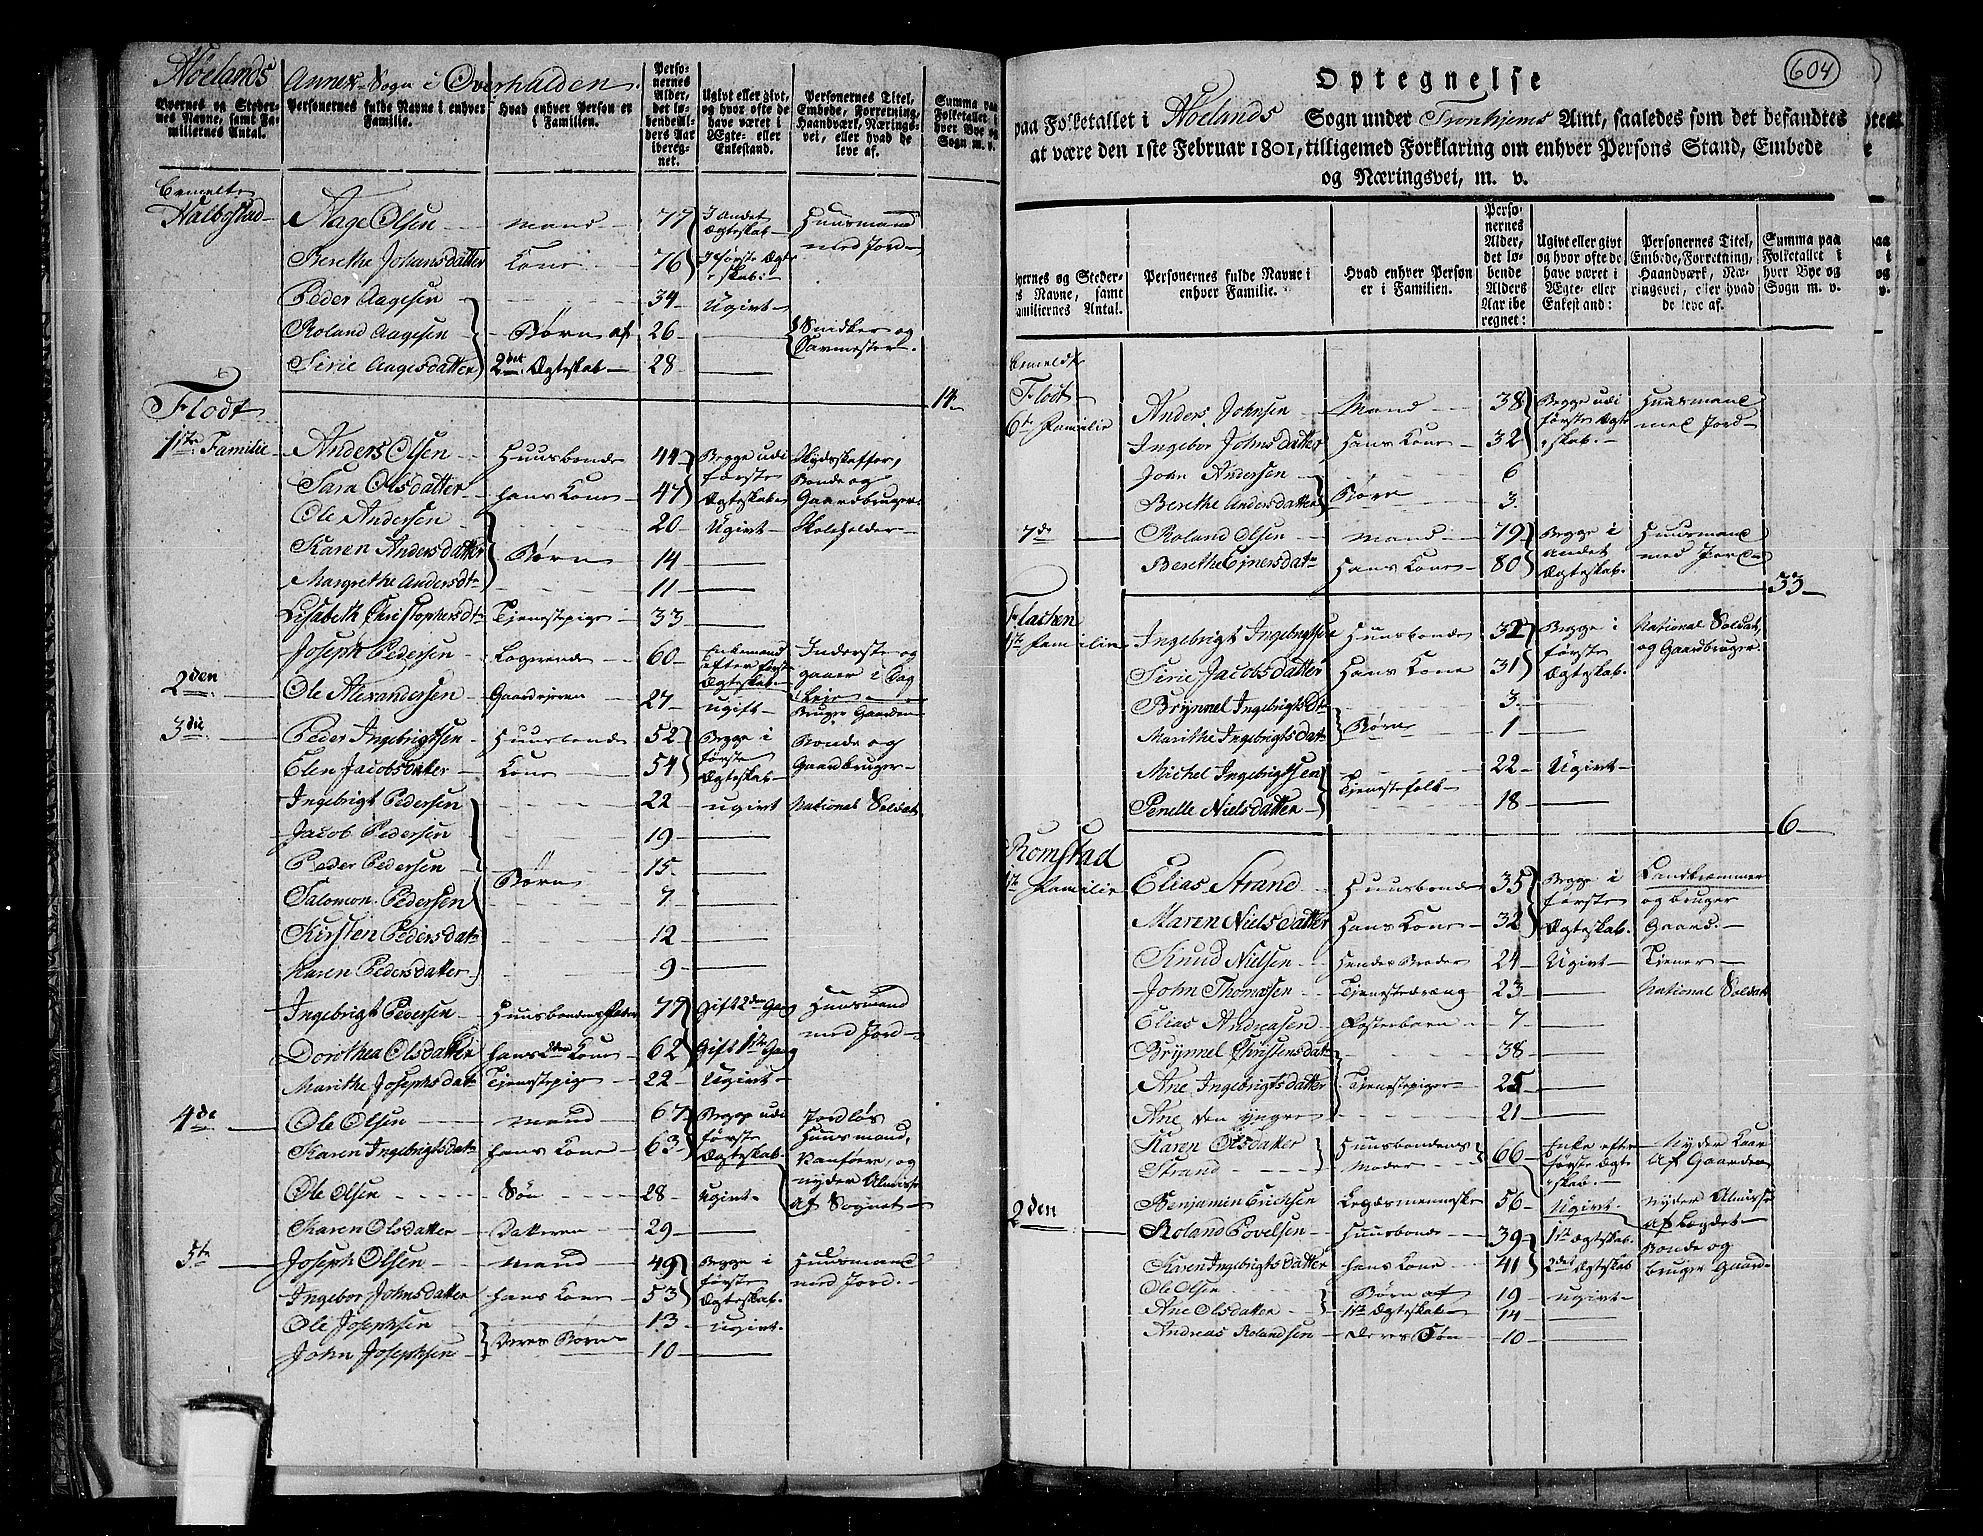 Høelands Annex-Sogn i Overhalden
Byernes og Stedernes Navne, samt Familiernes Antal.
Personernes fulde Navne i enhver Familie.
Hvad enhver Person er i Familien.
Personernes Alder, det løbende Alders Aar iberegnet.
Ugivt eller givt, og hvor ofte de have været i Ægte- eller Enkestand.
Personernes Titel, Embede, Forretning, Haandværk, Næringsvei, eller hvad de leve af.
Summa paa Folketallet i hver Bye og Sogn m. v.
Bemelte
Halbostad Aage Olsen mand 77 I Andet Ægteskab Huusmand med Jord
Berethe Johansdatter Kone 76 I første Ægteskab
Peder Aagesen 34 Ugivt
Roland Aagesen Børn af 26 Snidker og Savmester
Sirie Aagesdatter 2det Ægteskab 28
14
Flodt
1ste Familie Anders Olsen Huusbonde 44 Begge udi første Ægteskab Bonde og Gaardbruger
Sara Olsdatter hans Kone 47
Ole Andersen 20 Ugivt Skoleholder
Karen Andersdatter Børn 14
Margrethe Andersdtr 11
Lisabeth Christophersdtr Tjenestepige 33
Joseph Pedersen Logerende 60 Enkemand efter første Ægteskab Inderste og gaaer i Dag Leie
2den Ole Alexandersen Gaardejeren 27 ugift Bruger Gaarden
3die Peder Ingebrigtsen Huusbonde 52 Begge i første Ægteskab Bonde og Gaardbruger
Elen Jacobsdatter Kone 54
Ingebrigt Pedersen 22 ugivt National Soldat
Jacob Pedersen 19
Peder Pedersen 15
Salomon Pedersen Børn 7
Kirsten Pedersdatr 12
Karen Pedersdatter 9
Ingebrigt Pedersen Huusbondens Fader 77 Gift 2den Gang Huusmand med Jord
Dorothea Olsdatter hans 2den Kone 62 Gift 1ste Gang
Marithe Josephsdatr Tjenestepige 22 Ugivt
4de Ole Olsen mand 67 Begge udi første Ægteskab Jordløs Huusmand, Vanføre, og nyder Almisse af Sognet
Karen Ingebrigtsdatr hans Kone 63
Ole Olsen Søn 28 Ugivt
Karen Olsdatter Datteren 29
5te Joseph Olsen mand 49 Begge i første Ægteskab Huusmand med Jord
Ingebor Johnsdatter hans Kone 53
Ole Josephsen 13 Ugivt
John Josephsen Deres Børn 10
604
Optegnelse
paa Folketallet i Høelands Sogn under Tronhjems Amt, saaledes som det befandtes
at være den 1ste Februar 1801, tilligemed Forklaring om enhver Persons Stand, Embede
og Næringsvei, m. v.
Byernes og Stedernes Navne, samt Familiernes Antal.
Personernes fulde Navne i enhver Familie.
Hvad enhver Person er i Familien.
Personernes Alder, det løbende Alders Aar iberegnet:
Ugivt eller givt og hvor ofte de have været i Ægte- eller Enkestand:
Personernes Titel, Embede, Forretning, Haandværk, Næringsvei, eller hvad de leve af.
Summa paa Folketallet i hver Bye og Sogn m. v.
Bemeldte
Flodt
6te Familie Anders Johnsen Mand 38 Begge udi første Ægteskab Huusmand med Jord
Ingebor Johnsdatter Hans Kone 32
John Andersen 6
Berethe Andersdatter Børn 3
7de Roland Olsen Mand 79 Begge i Andet Ægteskab Huusmand med Jord
Berethe Ejnersdatr Hans Kone 80
33
Flatten
1ste Familie Ingebrigt Ingebrigtsen Huusbonde 32 Begge i første Ægteskab National Soldat, og Gaardbruger
Sirie Jacobsdatter Hans Kone 31
Brynnel Ingebrigtsdtr 3
Marithe Ingebrigtsdatr Børn 1
Michel Ingebrigtsen 22 Ugivt
Penelle Nielsdatter Tjenestefolk 18
6
Romstad
1te Familie Elias Strand Huusbonde 35 Begge i første Ægteskab og bruger Gaard
Maren Nielsdatter Hans Kone 32
Knud Nielsen Hendes Broder 24 Ugivt Tjener
John Thomesen Tjenestedreng 23 National Soldat
Elias Andreasen Fosterbarn 7
Brynnel Christensdatr 38
Ane Ingebrigtsdatter Tjenestepiger 25
Ane den yngre 21
Karen Olsdatter Strand Huusbondens Moder 66 Enke efter første Ægteskab Nyder Kaar af Gaarden
Benjamin Erichsen Legdsmenneske 56 Ugivt nyder Almisse af Legdet
2den Roland Povelsen Huusbonde 39 1te Ægteskab Bonde og bruger Gaard
Karen Ingebrigtsdatter hans Kone 41 2det Ægteskab
Ole Olsen Børn af 19 ugivt
Ane Olsdatter 1te Ægteskab 14
Andreas Rolandsen Deres Søn 10